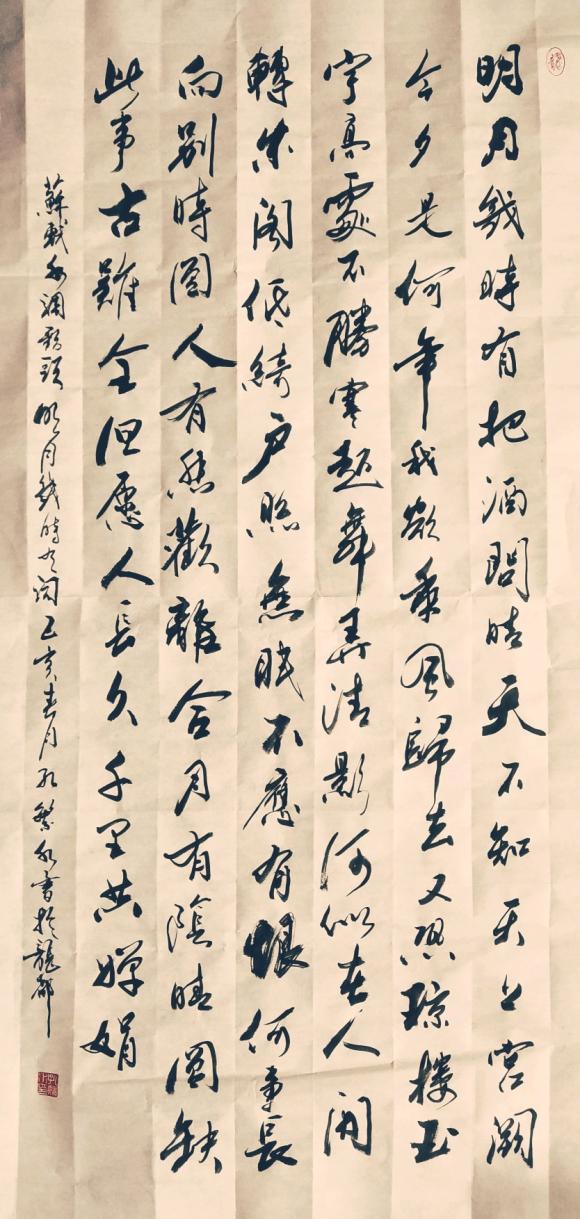 明月幾時有把酒問晴天不知天上宮闕
今夕是何年我欲乘風歸去又恐琼樓玉
宇高處不勝寒起舞弄清影何似在人间
轉朱阁低綺户照無眠不應有恨何事長
向别時圆人有悲歡離合月有陰晴圆缺
此事古難全但愿人長久千里共嬋娟
蘇軾水調歌頭明月幾時有己亥春月孔繁書於龍都